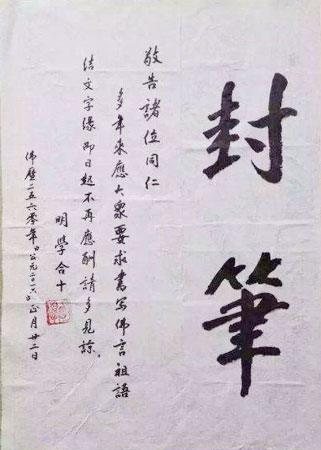 封筆
敬告諸位同仁
多年来應大衆要求書写佛言祖語
结文字缘即日起不再應酬請多見諒。
明学合十
佛曆二五六零年(公元二〇一六)正月廿二日